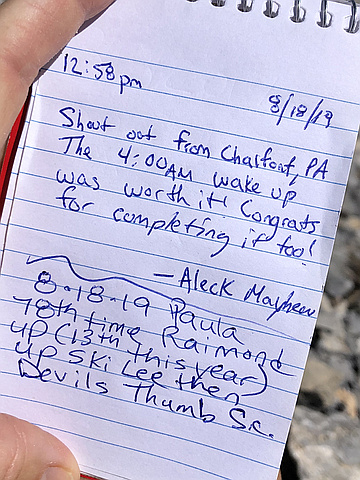 12:58pm
8/18/19
Shout out from Chalfont, PA
The 4:00AM wake up
was worth it! Congrats
for completing it too!
- Aleck Mayhew
8-18-19 Paula
78th time Raimond
up (13th this year)
up Ski Lee then
Devils Thumb Sr.